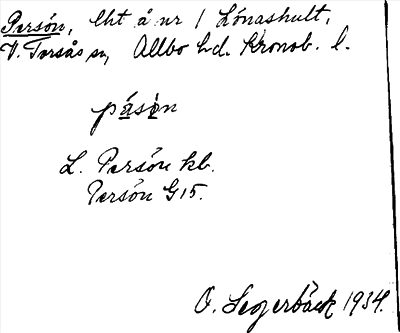 Persön, lht å nr 1 Lönashult,
V. Torsås sn, Allbo hd. Kronob. l.
påsön
L. Persön kb.
Persön G15.
O. Segerbäck 1934.